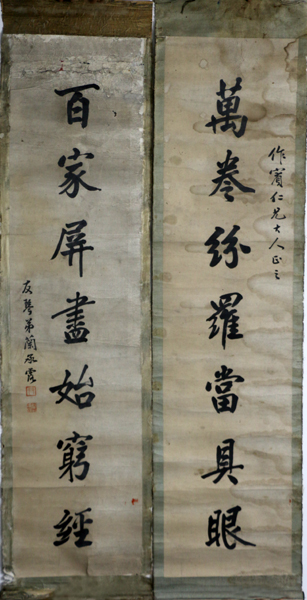 作賓仁兄大人正之
萬卷紛羅當具眼
百家屏盡始窮經
友琴弟蘭承霖